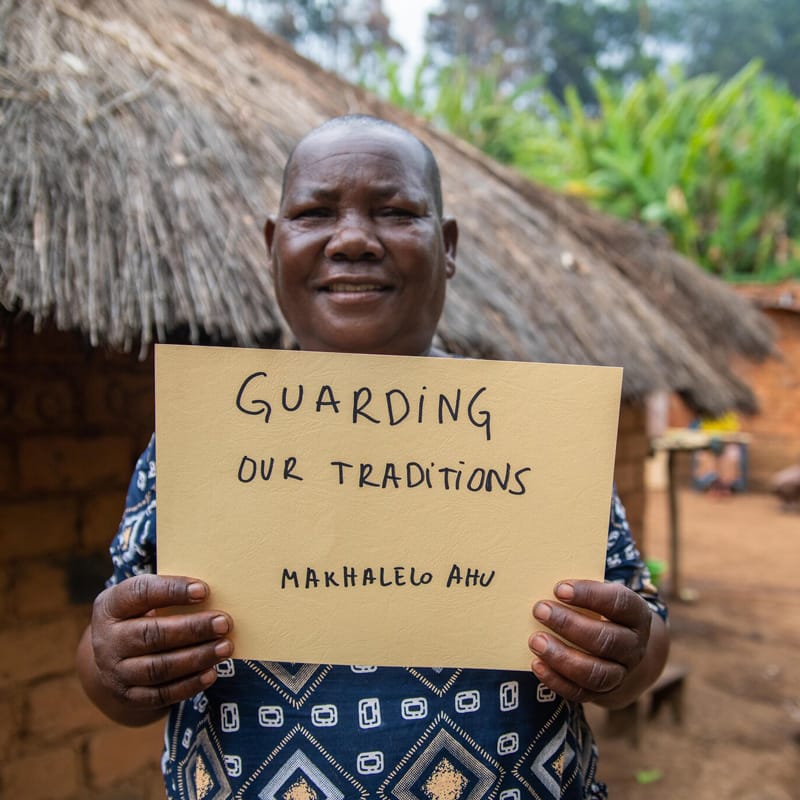 GUARDING
OUR TRADITIONS
MAKHALELO AHU